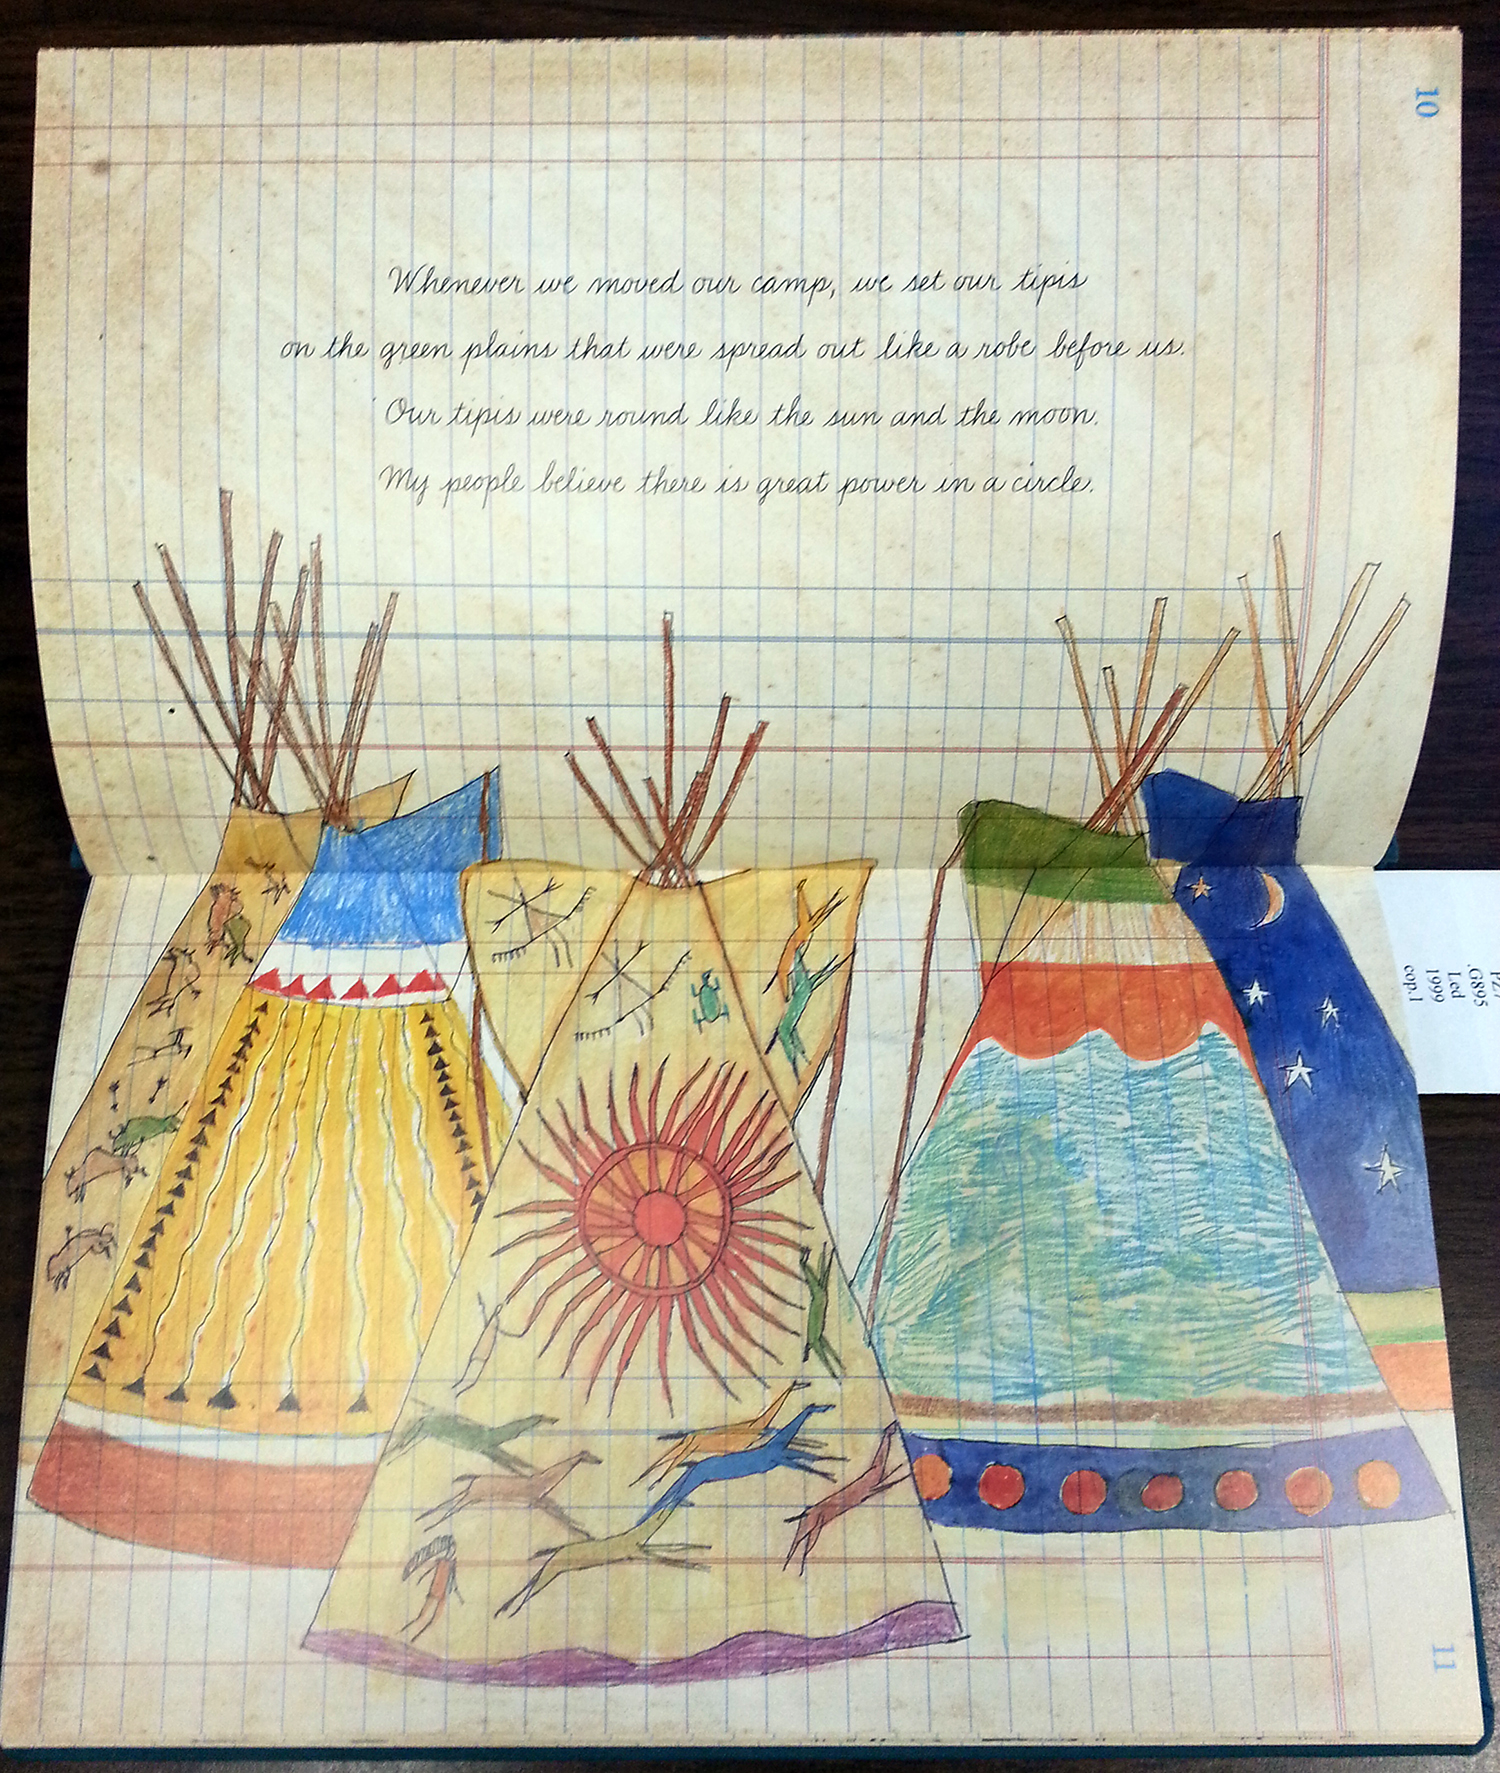 10
Whenever we moved our camp, we set our tipis
on the green plains that were spread out like a robe before us.
Our tipis were round like the sun and the moon.
My people believe there is great power in a circle.
.G895
Led
1999
cop.1
11